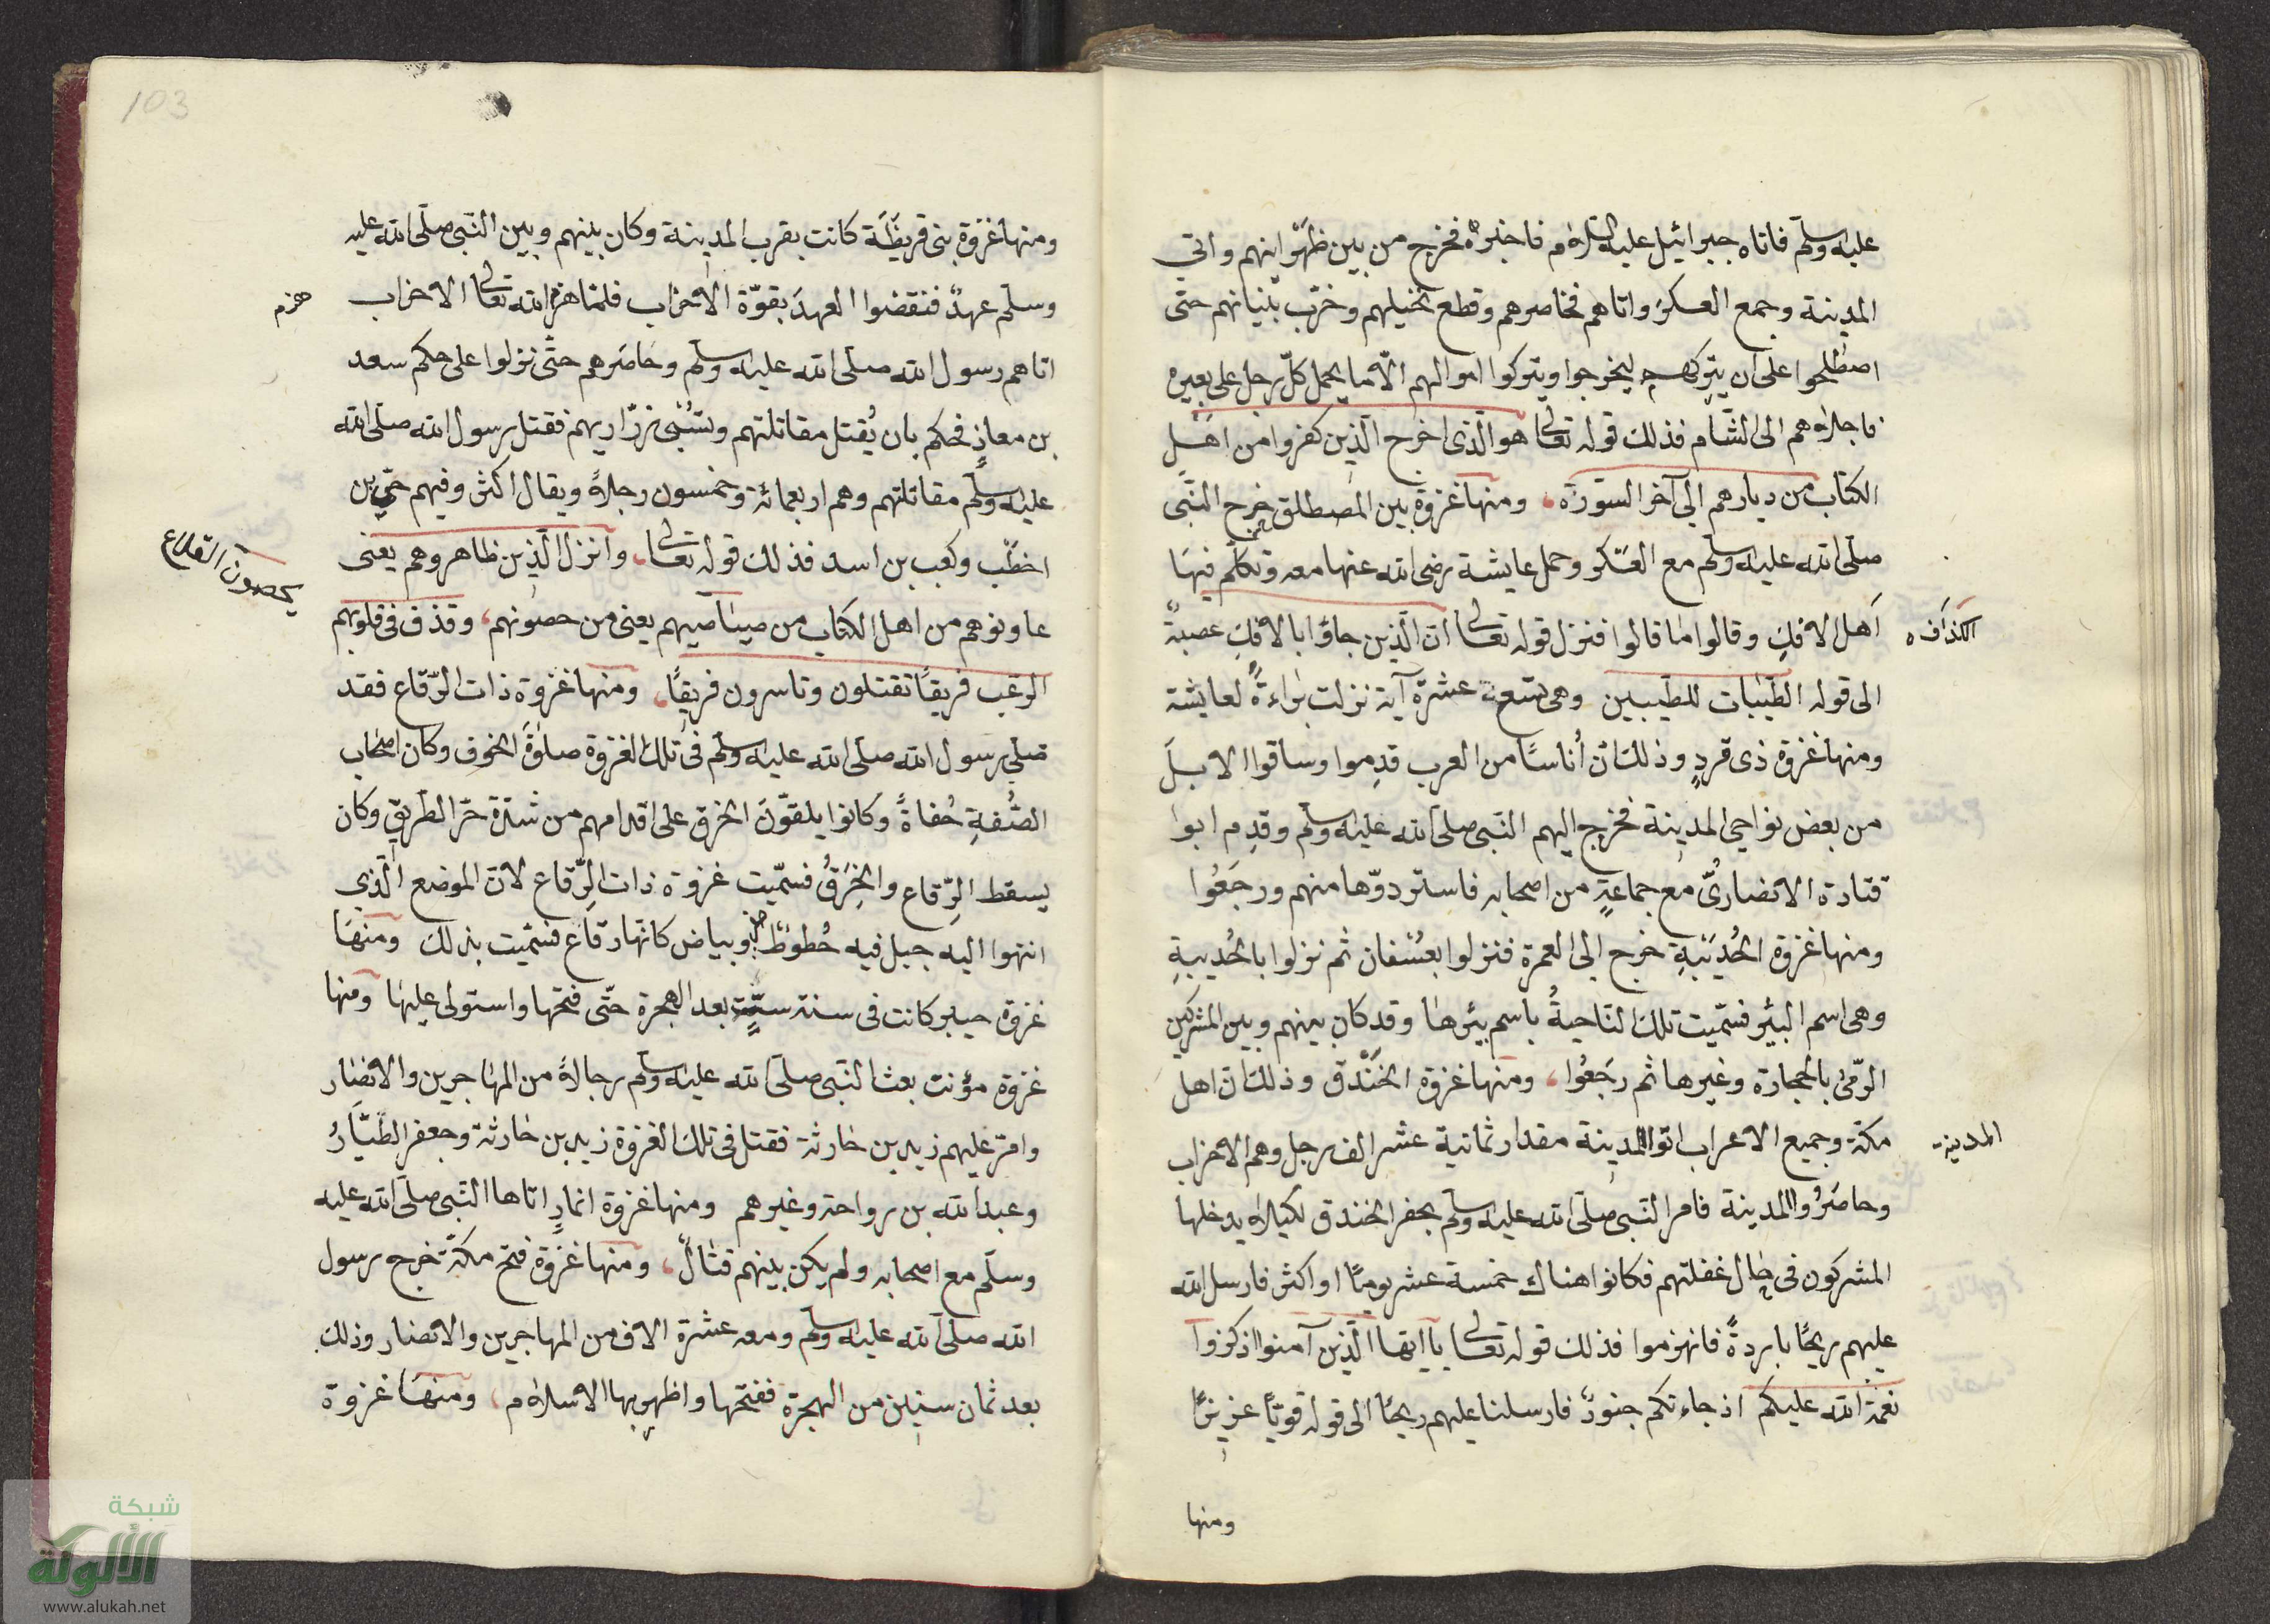 عليه وسلم فاتاه جبرائيل عليه السلام فاخبره فخرج من بين ظهرانيهم واتي
المدينة وجمع العسكر واتاهم فحاصرهم وقطع نخيلهم وخرّب بنيانهم حتى
اصطلحوا على ان يتركهم ليخرجوا ويتركوا اموالهم الّا ما يحمل كلّ رجل على بعيره
فاجلاهم الى الشام فذلك قوله تعالى هو الّذى اخرج الّذين كفروا من اهل
الكتاب من ديارهم الى آخر السورة، ومنها غزوة بين المصطلق خرج النّبى
صلى الله عليه وسلم مع العسكر وحمل عايشة رضى الله عنها معه وتكلّم فيها
اهل الافك وقالوا ما قالوا فنزل قوله تعالى انّ الّذين جاؤا بالافك عصبة
الكذافه
الى قوله الطّيبات للطّيبين وهى تسعة عشرة آية نزلت براءةً لعايشة
ومنها غزوة ذى قردٍ وذلك انّ أناسًا من العرب قدِموا وساقوا الابل
من بعض نواحي المدينة فخرج اليهم النّبى صلى الله عليه وسلم وقدِم ابوا
قتادة الانصارىُّ مع جماعةٍ من اصحابه فاستردوّها منهم ورجَعُوا
ومنها غزوة الحُديَبيةِ خرج الى العمرة فنزلوا بعُسْفان ثم نزلوا بالحُديبيةِ
وهى اسم البئر فسمّيت تلك النّاحيةُ باسم بئرها وقد كان بينهم وبين المشركين
الرّمىُ بالحجارة وغيرها ثم رجَعُوا، ومنها غزوة الخَنْدق وذلك انّ اهل
مكّة وجميع الاعراب اتوا المدينة مقدار ثمانية عشر الف رجل وهم الاحزاب
المدينة
وحاصرُوا المدينة فامر النّبى صلى الله عليه وسلم بحفر الخندق لكيلاه يدخلها
المشركون فى حال غفلتهم فكانوا هناك خمسة عشر يومًا او اكثر فارسل الله
عليهم ريحًا باردةً فانهزموا فذلك قوله تعالى يا ايّها الّذين آمنوا اذكروا
نعمة الله عليكم اذ جاءتكم جنودٌ فارسلنا عليهم ريحًا الى قوله قويًّا عزيزًا
ومنها
103
ومنها غزوة بنى قريظَة كانت بقرب المدينة وكان بينهم وبين النّبى صلى الله عليه
وسلّم عهدٌ فنقضوا العهدَ بقوّة الاحزاب فلمّا هزم الله تعالى الاحزاب
هزم
اتاهم رسول الله صلى الله عليه وسلم وحاصَرهم حتّى نزلوا على حكم سعد
بن معاذٍ فحكم بان يُقتل مقاتلتهم وتسْبَى ذرّاريهم فقتل رسول الله صلى الله
عليه وسلّم مقاتلتهم وهم اربعمائة وخمسون رجلاً ويقال اكثر وفيهم حيّ بن
اخطَب وكعب بن اسد فذلك قوله تعالى، وانزل الّذين ظاهروهم يعنى
يحصون القلاع
عاونوهم من اهل الكتاب من صياصيهم يعنى من حصونهم، وقذف فى قلوبهم
الرعب فريقًا تقتلون وتاسرون فريقًا، ومنها غزوة ذات الرّقاع فقد
صلّى رسول الله صلى الله عليه وسلم فى تلك الغزوة صلوةَ الخوف وكان اصحاب
الصُّفةِ حُفاةً وكانوا يلقوّن الخرق على اقدامهم من شدّة حرّ الطريق وكان
يسقط الرِّقاع والخِرَقُ فسمّيت غزوة ذات الرِّقاع لانّ الموضع الّذى
انتهوا اليه جبل فيه خُطوطٌ وبياض كانّها رقاع فسمّيت بذلك ومنها
غزوة خيبر كانت فى سنة ستّةٍ بعد الهجرة حتّى فتحها واستولى عليها ومنها
غزوة مؤنت بعث النّبى صلى الله عليه وسلم رجالاً من المهاجرين والانصار
وامّر عليهم زيد بن حارثة فقتل فى تلك الغزوة زيد بن حارثة وجعفر الطيّارُ
وعبد الله بن رواحة وغيرهم ومنها غزوة انمارٍ اتاها النّبى صلى الله عليه
وسلّم مع اصحابه ولم يكن بينهم قتالٌ، ومنها غزوة فتح مكّة خرج رسول
الله صلى الله عليه وسلم ومعه عشرة الاف من المهاجرين والانصار وذلك
بعد ثمان سنين من الهجرة ففتحها واظهر بها الاسلام، ومنها غزوة
شبكة
الألوكة
www.alukah.net